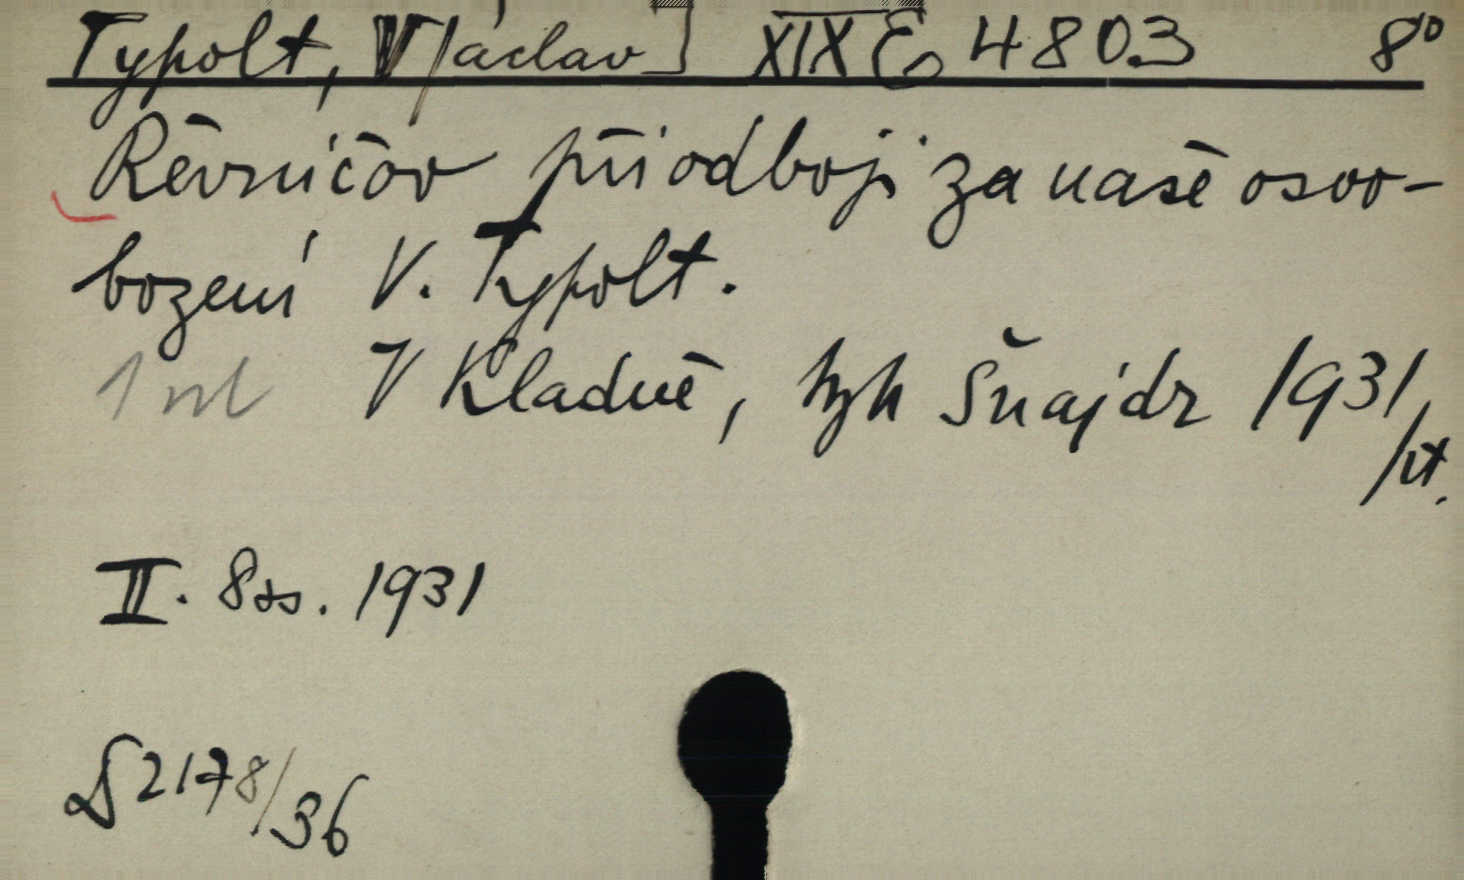 Typolt, V[áclav] XIX E 4803 8°
Řevničov při odboji za naše osvo-
bození V. Typolt.
1 vl V Kladně, tyk Šnajdr 1931
/it.
II. 8ss. 1931
§ 2178/36